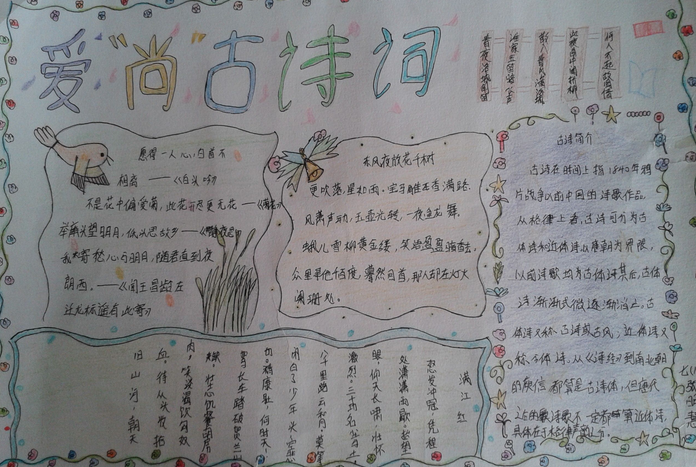 爱“尚”古诗词
愿得一人心,白首不
相离 ——《白头吟》
不是花中偏爱菊,此花开尽更无花
举头望明月,低头思故乡
我寄愁心与明月,随君直到夜
郎西。——《闻王昌龄左
迁龙标遥有此寄》
东风夜放花千树
更吹落,星如雨。宝马雕车香满路.
风箫声动,玉壶光转,一夜鱼龙舞.
蛾儿雪柳黄金缕,笑语盈盈暗香去.
众里寻他千百度,蓦然回首,那人却在灯火
阑珊处.
古诗简介
古诗在时间上指1840年鸦
片战争以前中国的诗歌作品.
从格律上看,古诗可分为古
体诗和近体诗以唐朝为界限,
以前诗歌均为古体诗其后,古体
诗渐渐式微逐渐消亡.古
体诗又称古诗或古风;近体诗又
称今体诗.从《诗经》到南北朝
的庾信都算是古体诗,但唐代
以后的诗歌不一定都算近体诗.
满江红
怒发冲冠,凭栏
处潇潇雨歇.抬望
眼仰天长啸,壮怀
激烈.三十功名尘与土
八千里路云和月.莫等
闲白了少年头,空悲
切.靖康耻,何时
驾长车踏破
饥餐
肉,笑谈渴饮匈奴
血.待从头收拾
旧山河,朝天